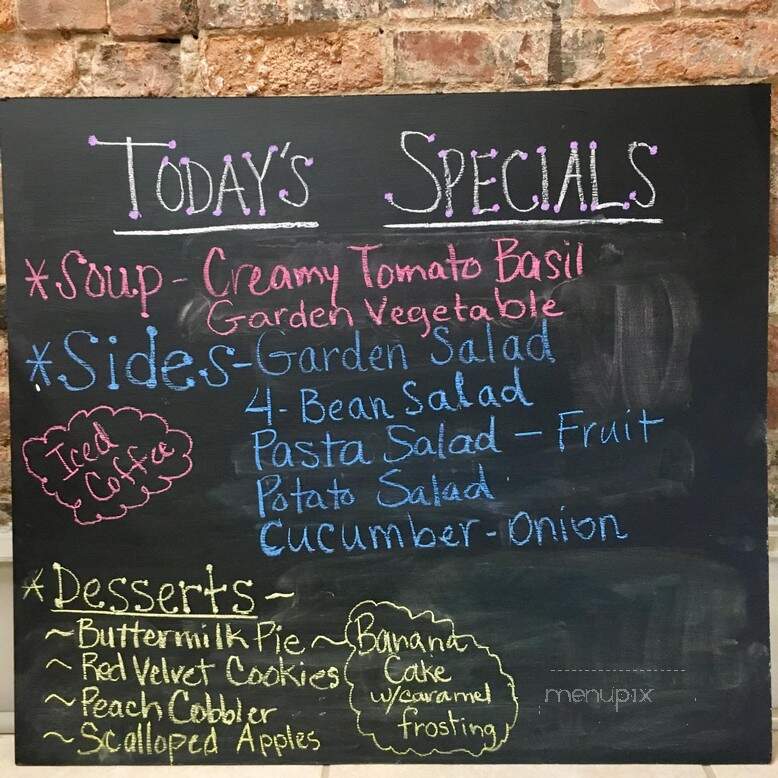 TODAY'S SPECIALS
*Soup - Creamy Tomato Basil
Garden Vegetable
*Sides - Garden Salad
4-Bean Salad
Pasta Salad - Fruit
Potato Salad
Cucumber - Onion
Iced
Coffee
*Desserts ~
~Buttermilk Pie
~Red Velvet Cookies
~Peach Cobbler
~Scalloped Apples
~Banana
Cake
w/caramel
frosting
menupix